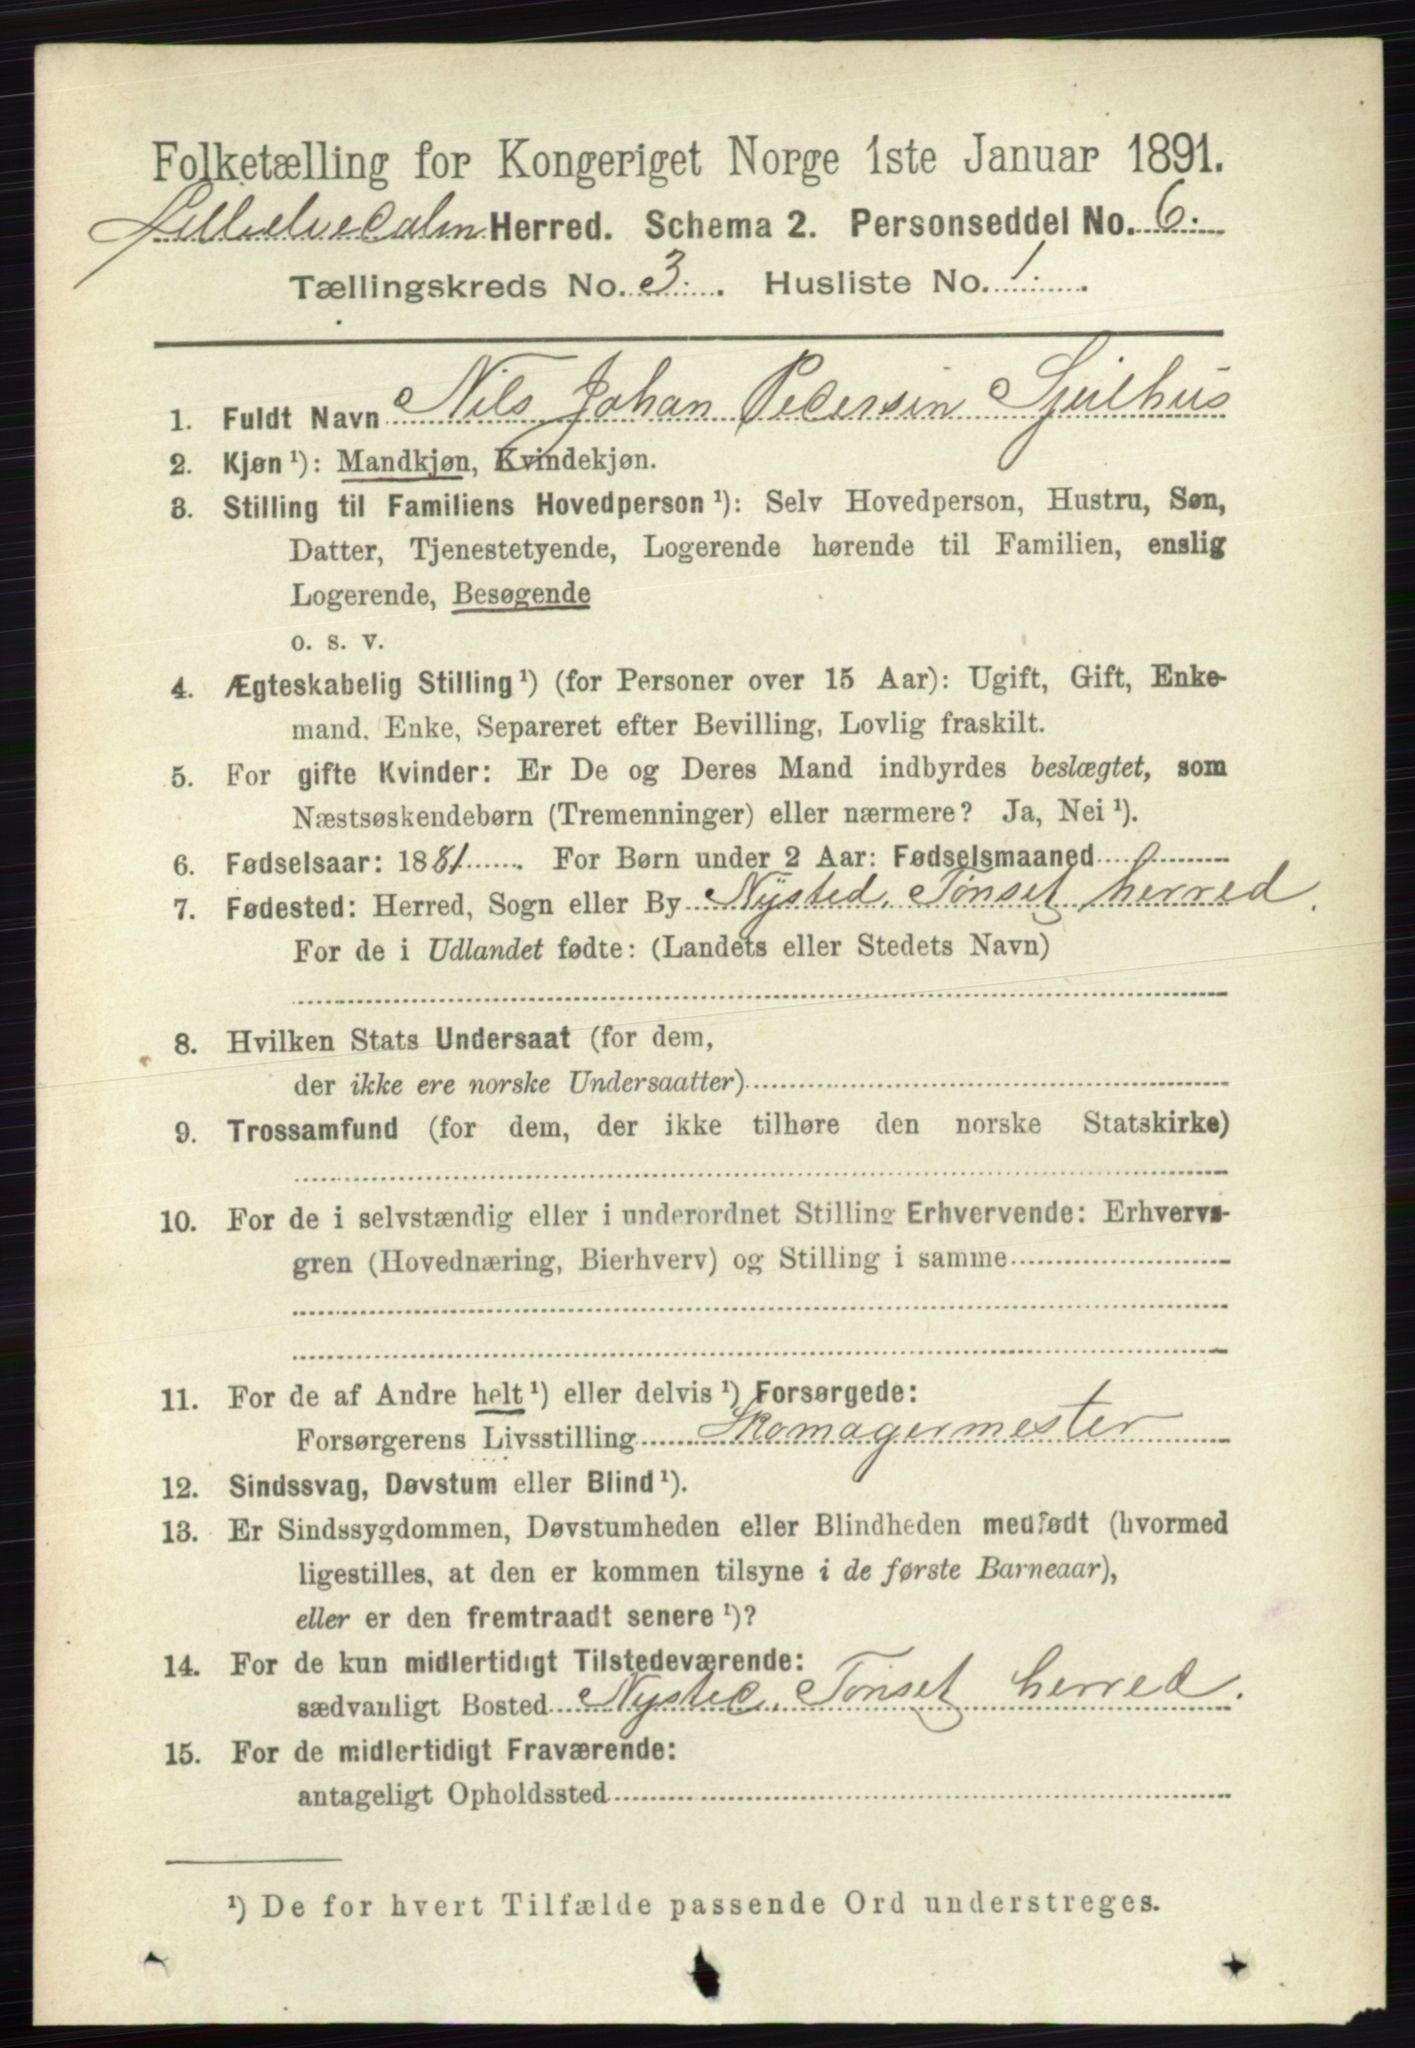 Folketælling for Kongeriget Norge 1ste Januar 1891.
Lilleelvedalen Herred. Schema 2. Personseddel No. 6.
Tællingskreds No. 3. Husliste No. 1.
1. Fuldt Navn Nils Johan Pedersen
2. Kjøn ¹): Mandkjøn, Kvindekjøn.
3. Stilling til Familiens Hovedperson ¹): Selv Hovedperson, Hustru, Søn,
Datter, Tjenestetyende, Logerende hørende til Familien, enslig
Logerende, Besøgende
o. s. v.
4. Ægteskabelig Stilling ¹) (for Personer over 15 Aar): Ugift, Gift, Enke-
mand, Enke, Separeret efter Bevilling, Lovlig fraskilt.
5. For gifte Kvinder: Er De og Deres Mand indbyrdes beslægtet, som
Næstsøskendebørn (Tremenninger) eller nærmere? Ja, Nei ¹).
6. Fødselsaar: 1881. For Børn under 2 Aar: Fødselsmaaned
7. Fødested: Herred, Sogn eller By Nysted, Tønset herred.
For de i Udlandet fødte: (Landets eller Stedets Navn)
8. Hvilken Stats Undersaat (for dem,
der ikke ere norske Undersaatter)
9. Trossamfund (for dem, der ikke tilhøre den norske Statskirke)
10. For de i selvstændig eller i underordnet Stilling Erhvervende: Erhvervs-
gren (Hovednæring, Bierhverv) og Stilling i samme
11. For de af Andre helt ¹) eller delvis ¹) Forsørgede:
Forsørgerens Livsstilling Skomagermester
12. Sindssvag, Døvstum eller Blind ¹).
13. Er Sindssygdommen, Døvstumheden eller Blindheden medfødt (hvormed
ligestilles, at den er kommen tilsyne i de første Barneaar),
eller er den fremtraadt senere ¹)?
14. For de kun midlertidigt Tilstedeværende:
sædvanligt Bosted Nysted, Tønset herred.
15. For de midlertidigt Fraværende:
antageligt Opholdssted
¹) De for hvert Tilfælde passende Ord understreges.